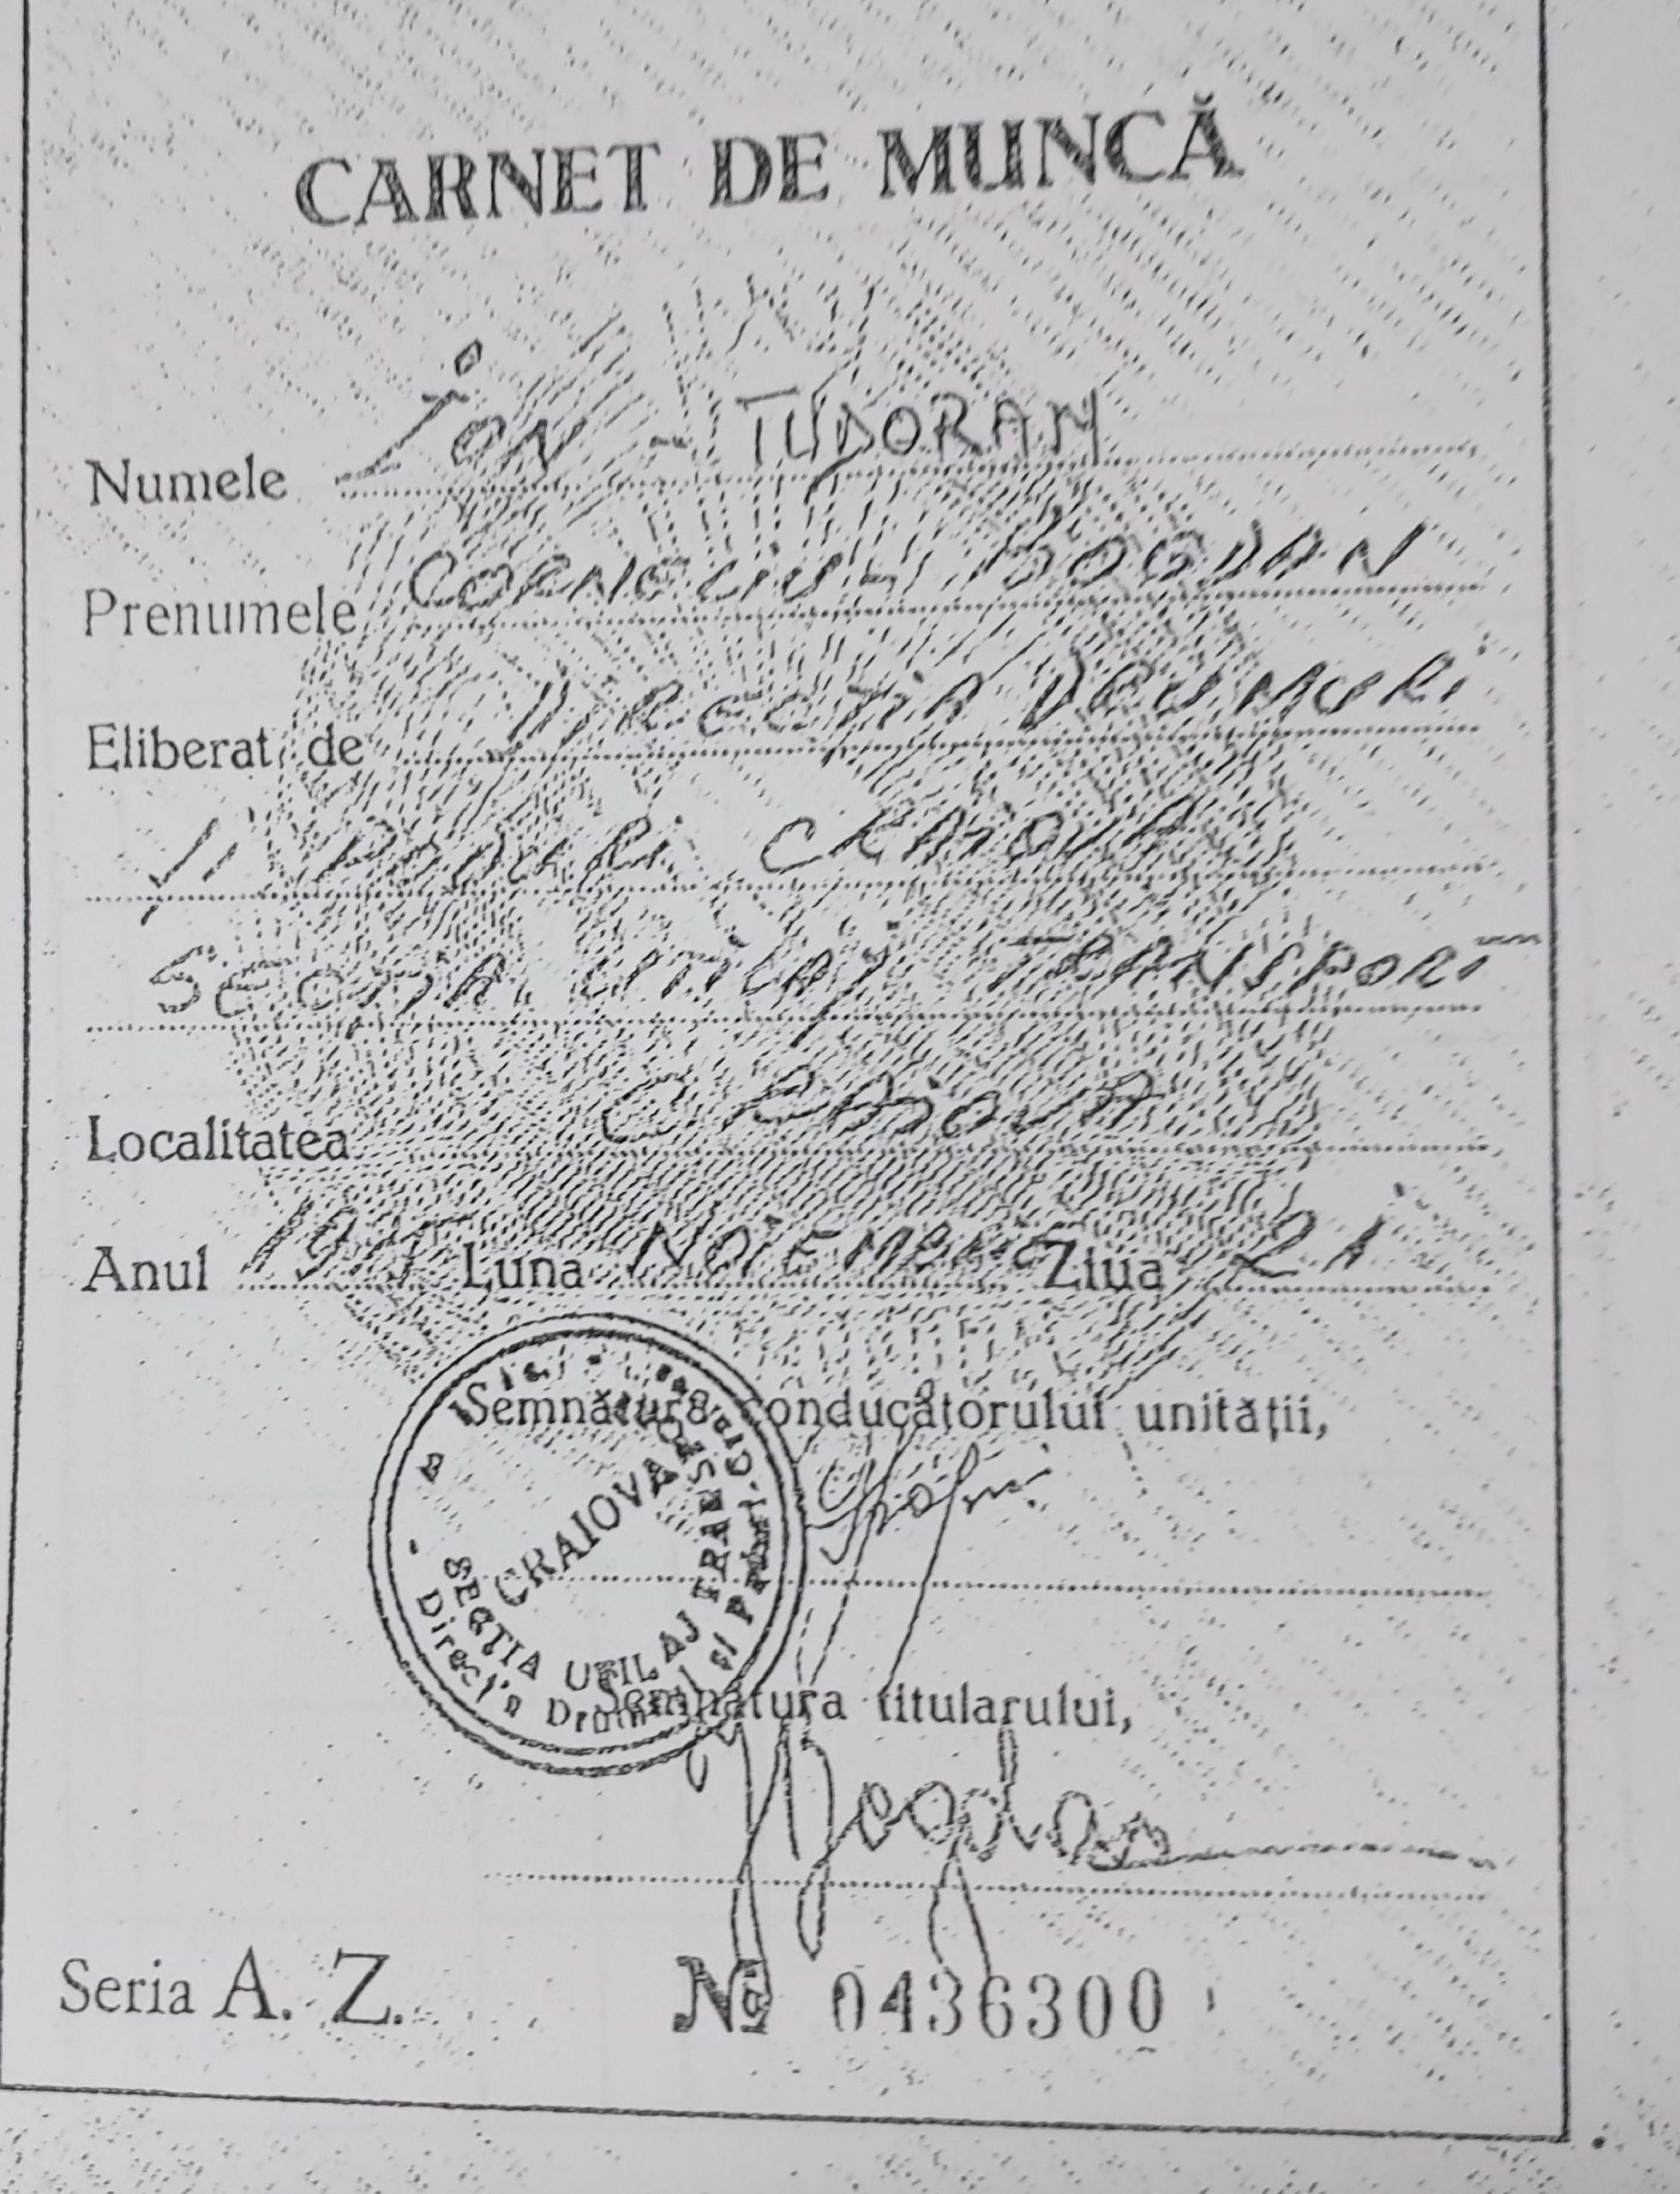 CARNET DE MUNCĂ
Numele Ion - TUDORAN
Prenumele CORNELIU - BOGDAN
Eliberat de DIRECTIA DRUMURI
SI PODURI CRAIOVA
SECTIA UTILAJ TRANSPORT
Localitatea CRAIOVA
Anul Luna NOIEMBRIE Ziua 21
Semnătura conducătorului unității,
CRAIOVA
SECȚIA UTILAJ TRANSPORT
Direcția Drumuri și Poduri
Semnătura titularului,
Seria A. Z. № 0436300